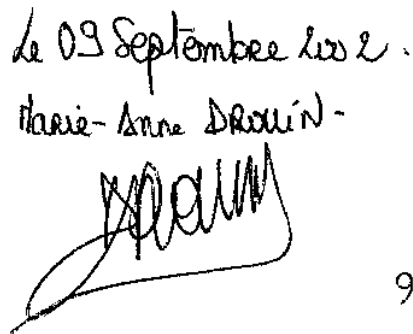 Le 09 Septembre 2002.
Marie-Anne DROUIN-
9